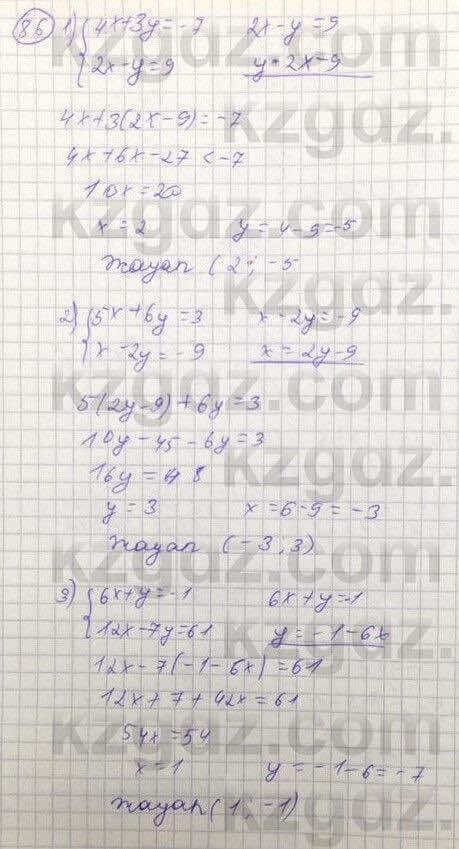 86 1) { 4x+3y=-7 2x-y=9
2x-y=9 y=2x-9
4x+3(2x-9)=-7
4x+6x-27<-7
10x=20
x=2 y=4-9=-5
Жауап (2; -5
2) { 5x+6y=3 x-2y=-9
x-2y=-9 x=2y-9
5(2y-9)+6y=3
10y-45-6y=3
16y=48
y=3 x=6-9=-3
Жауап (-3; 3)
3) { 6x+y=-1 6x+y=-1
12x-7y=61 y=-1-6x
12x-7(-1-6x)=61
12x+7+42x=61
54x=54
x=1 y=-1-6=-7
Жауап (1; -1)
kzgdz.com
kzgdz.com
kzgdz.com
kzgdz.com
kzgdz.com
kzgdz.com
kzgdz.com